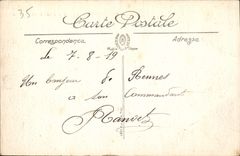 35
Carte Postale
Correspondance
Adresse
le 7-8-19
Un bonjour de Rennes
a son Commandant